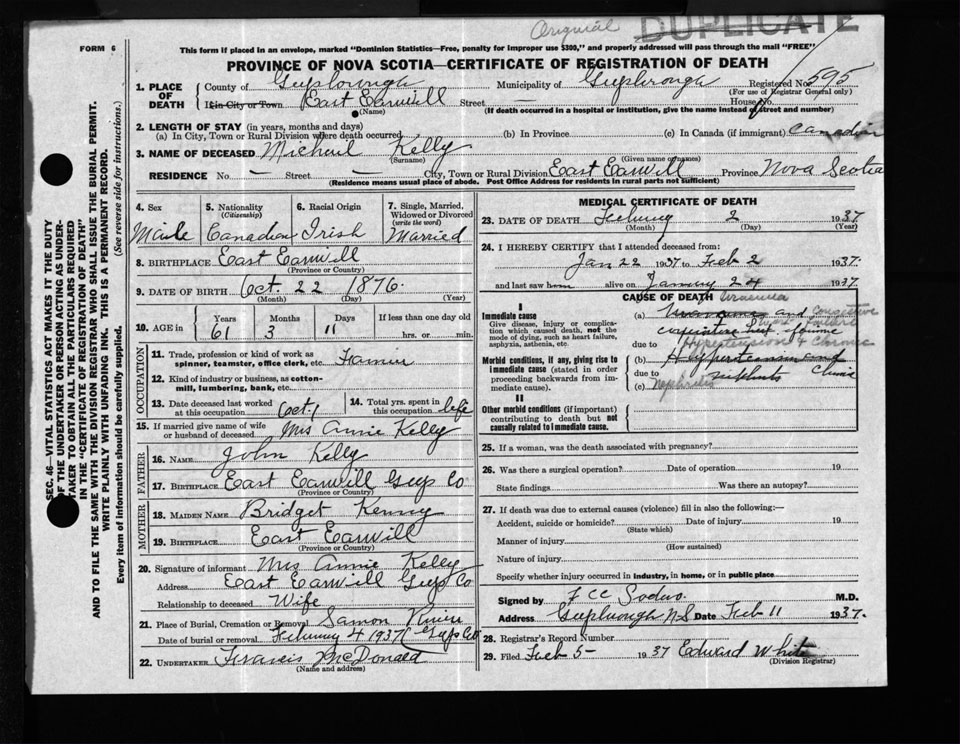 Original DUPLICATE
FORM 6
This form if placed in an envelope, marked "Dominion Statistics—Free, penalty for improper use $300," and properly addressed will pass through the mail "FREE"
PROVINCE OF NOVA SCOTIA—CERTIFICATE OF REGISTRATION OF DEATH
1. PLACE OF DEATH
County of Municipality of Registered No. 595
(For use of Registrar General only)
If in City or Town East Street — House No.
(Name) (If death occurred in a hospital or institution, give the name instead of street and number)
2. LENGTH OF STAY (in years, months and days)
(a) In City, Town or Rural Division where death occurred (b) In Province (c) In Canada (if immigrant) Canadian
3. NAME OF DECEASED Kelly
(Surname) (Given name or names)
RESIDENCE No. — Street — City, Town or Rural Division East Province Nova Scotia
(Residence means usual place of abode. Post Office Address for residents in rural parts not sufficient)
SEC. 46—VITAL STATISTICS ACT MAKES IT THE DUTY
OF THE UNDERTAKER OR PERSON ACTING AS UNDER-
TAKER TO OBTAIN ALL THE PARTICULARS REQUIRED
IN THE "CERTIFICATE OF REGISTRATION OF DEATH"
AND TO FILE THE SAME WITH THE DIVISION REGISTRAR WHO SHALL ISSUE THE BURIAL PERMIT.
WRITE PLAINLY WITH UNFADING INK. THIS IS A PERMANENT RECORD.
Every item of information should be carefully supplied. (See reverse side for instructions.)
4. Sex
5. Nationality (Citizenship) Canadian
6. Racial Origin Irish
7. Single, Married, Widowed or Divorced (write the word) Married
8. BIRTHPLACE East
(Province or Country)
9. DATE OF BIRTH Oct. 22 1876
(Month) (Day) (Year)
10. AGE in Years Months Days If less than one day
61 3 11 hrs. or min.
OCCUPATION
11. Trade, profession or kind of work as spinner, teamster, office clerk, etc. Farmer
12. Kind of industry or business, as cotton-mill, lumbering, bank, etc.
13. Date deceased last worked at this occupation Oct.
14. Total yrs. spent in this occupation life
15. If married give name of wife or husband of deceased Mrs Annie Kelly
FATHER
16. NAME John Kelly
17. BIRTHPLACE East Guys Co
(Province or Country)
MOTHER
18. MAIDEN NAME Bridget Kenny
19. BIRTHPLACE East
(Province or Country)
20. Signature of informant Mrs Annie Kelly
Address East Guys Co
Relationship to deceased Wife
21. Place of Burial, Cremation or Removal
Date of burial or removal 4 1937 Guys Co
22. UNDERTAKER Francis McDonald
(Name and address)
MEDICAL CERTIFICATE OF DEATH
23. DATE OF DEATH 2 1937
(Month) (Day) (Year)
24. I HEREBY CERTIFY that I attended deceased from:
Jan 22 1937 to Feb 2 1937.
and last saw him alive on 24 1937.
CAUSE OF DEATH
I
Immediate cause (a) Uraemia and Congestive
Give disease, injury or complication which caused death, not the mode of dying, such as heart failure, asphyxia, asthenia, etc.
due to Hypertension & Chronic
Morbid conditions, if any, giving rise to immediate cause (stated in order proceeding backwards from immediate cause).
(b) Hypertension and
due to Chronic
(c) Nephritis
II
Other morbid conditions (if important) contributing to death but not causally related to immediate cause.
25. If a woman, was the death associated with pregnancy?
26. Was there a surgical operation? Date of operation 19
State findings Was there an autopsy?
27. If death was due to external causes (violence) fill in also the following:—
Accident, suicide or homicide? Date of injury 19
(State which)
Manner of injury
(How sustained)
Nature of injury
Specify whether injury occurred in industry, in home, or in public place
Signed by M.D.
Address N.S Date Feb 11 1937.
28. Registrar's Record Number
29. Filed Feb 5- 1937 Edward White
(Division Registrar)